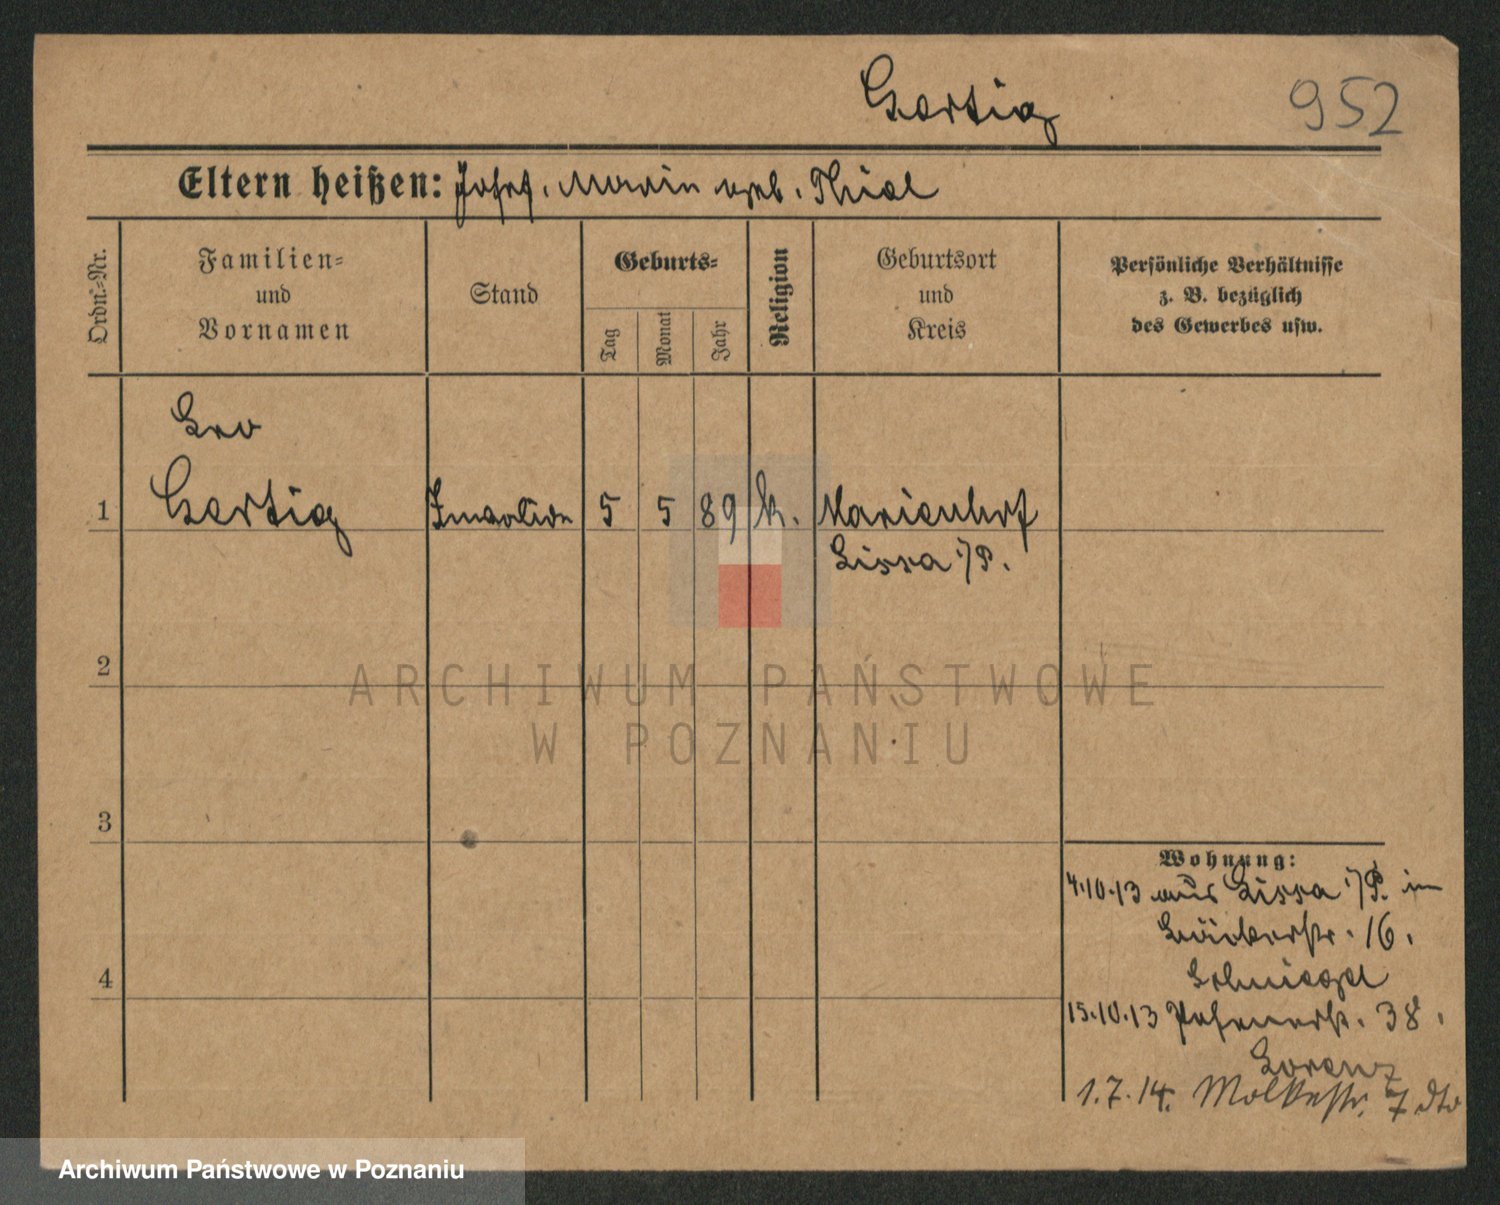 Gertig 952
Eltern heißen: Josef, Marie geb. Thiel
Ordn.-Nr.
Familien-
und
Vornamen
Stand
Geburts-
Tag
Monat
Jahr
Religion
Geburtsort
und
Kreis
Persönliche Verhältnisse
z. B. bezüglich
des Gewerbes usw.
Leo
1 Gertig Invalide 5 5 89 k. Marienhof
Lissa i/P.
2
ARCHIWUM PAŃSTWOWE
W POZNANIU
3
Wohnung:
4.10.13 aus Lissa i/P. in
16.
Schmiegel
4
15.10.13 Posenerstr. 38.
Lorenz
1.7.14. Moltkestr. 7 dto
Archiwum Państwowe w Poznaniu